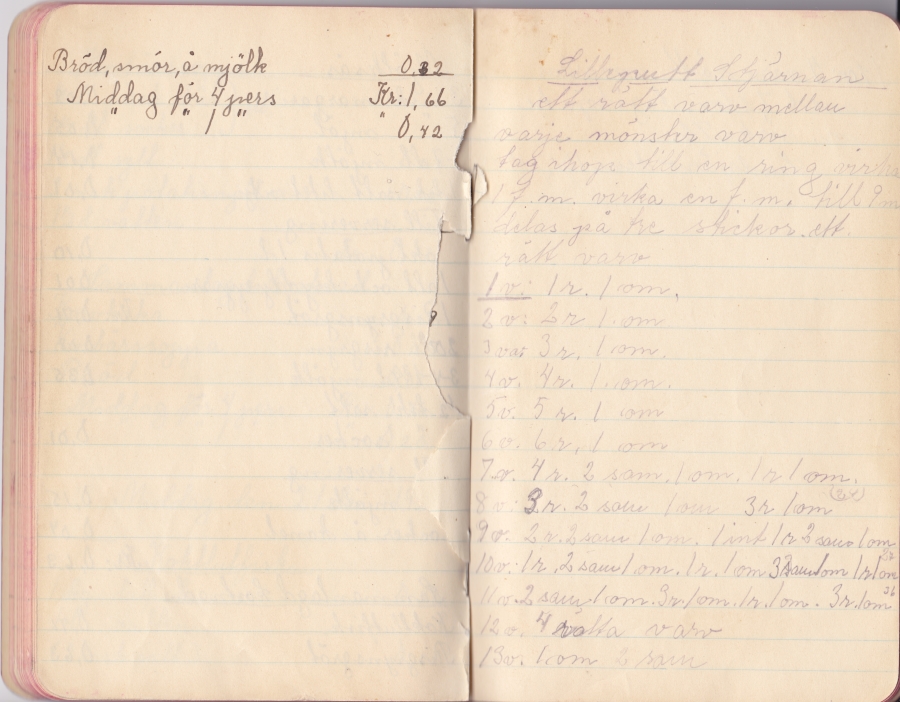 Bröd, smör, å mjölk 0,32
Middag för 4 pers Kr: 1,66
" " 1 " " 0,42
Lilleputt Stjärnan
ett rätt varv mellan
varje mönster varv
tag ihop till en ring virka
1 f.m. virka en f.m. till 9m
delas på tre stickor ett
rätt varv
1 v: 1 r. 1 om.
2 v: 2 r 1 om
3 var 3 r. 1 om.
4 v. 4 r. 1 om.
5 v. 5 r. 1 om
6 v. 6 r, 1 om
7 v. 4 r. 2 sam. 1 om. 1 r 1 om.
8 v: 3 r. 2 sam 1 om 3 r 1 om
9 v. 2 r. 2 sam 1 om. 1 int 1 r 2 sam 1 om
10 v: 1 r. 2 sam 1 om. 1 r. 1 om 3 sam 1 om 1 r 1 om
11 v. 2 sam 1 om. 3 r 1 om. 1 r. 1 om. 3 r. 1 om
12 v. 4 räta varv
13 v. 1 om 2 sam